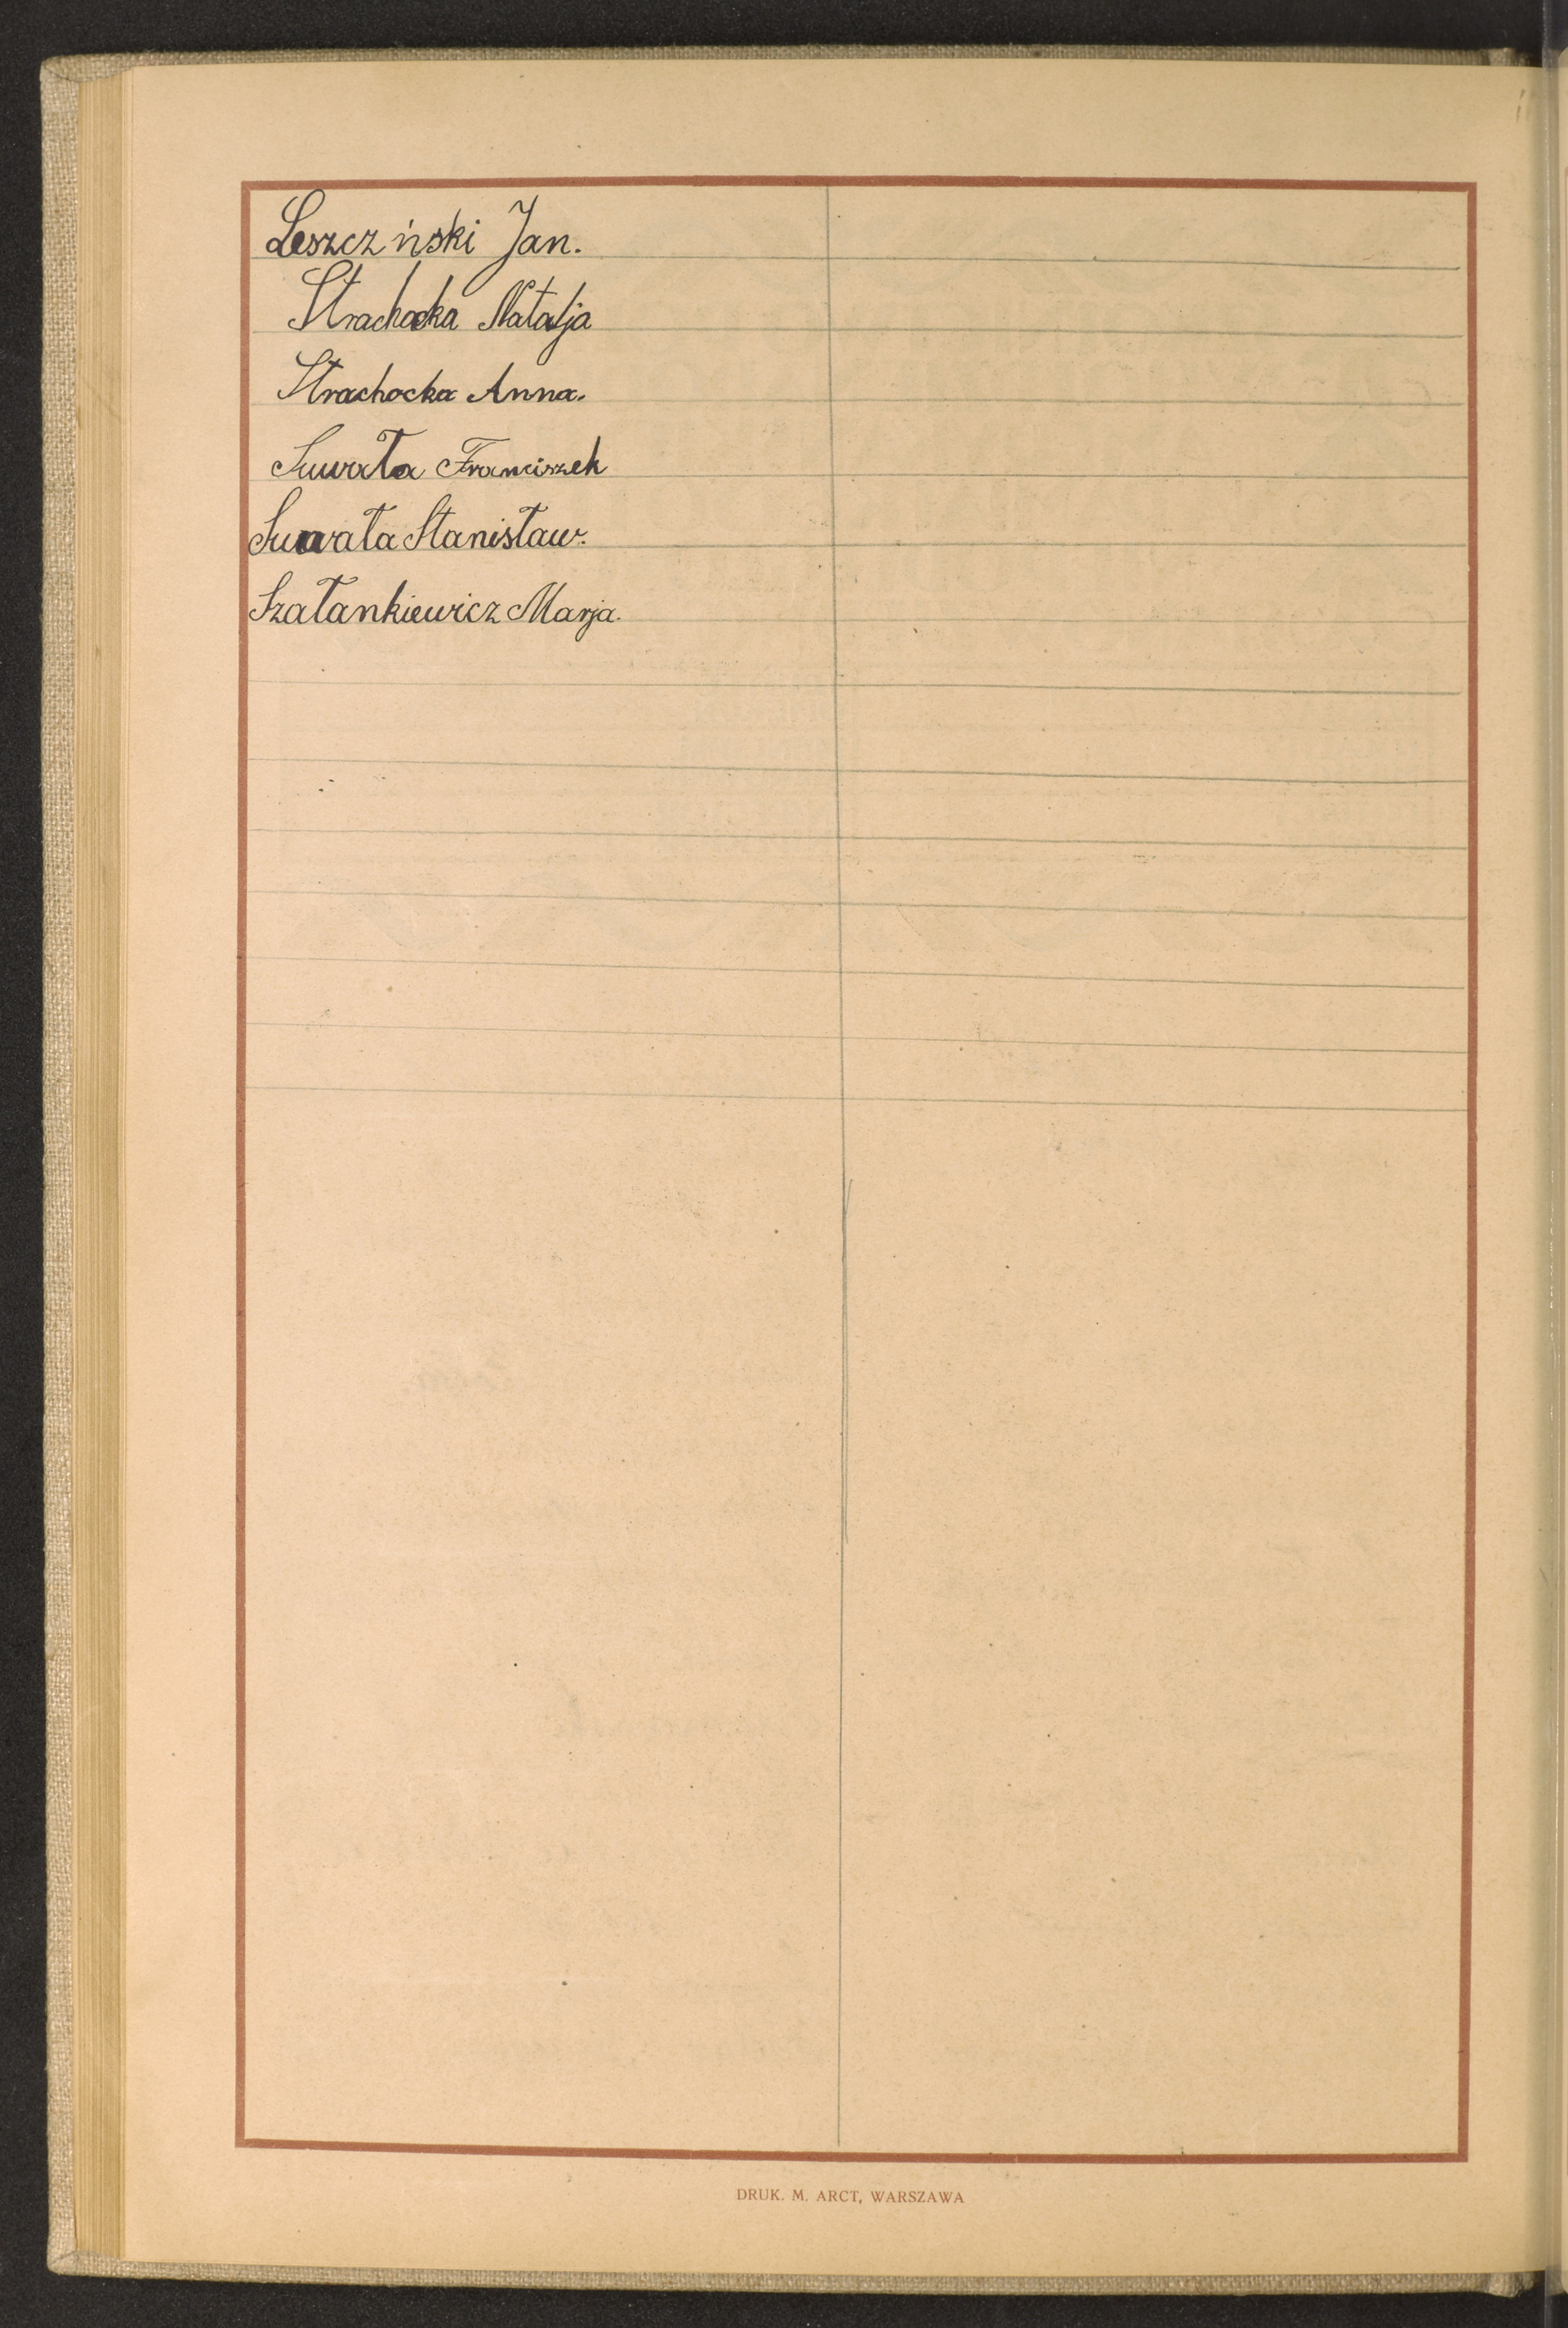 Leszcz ński Jan.
Strachocka Natalja
Strachocka Anna.
Suwała Franciszek
Suwała Stanisław.
Szałankiewicz Marja.
DRUK. M. ARCT, WARSZAWA